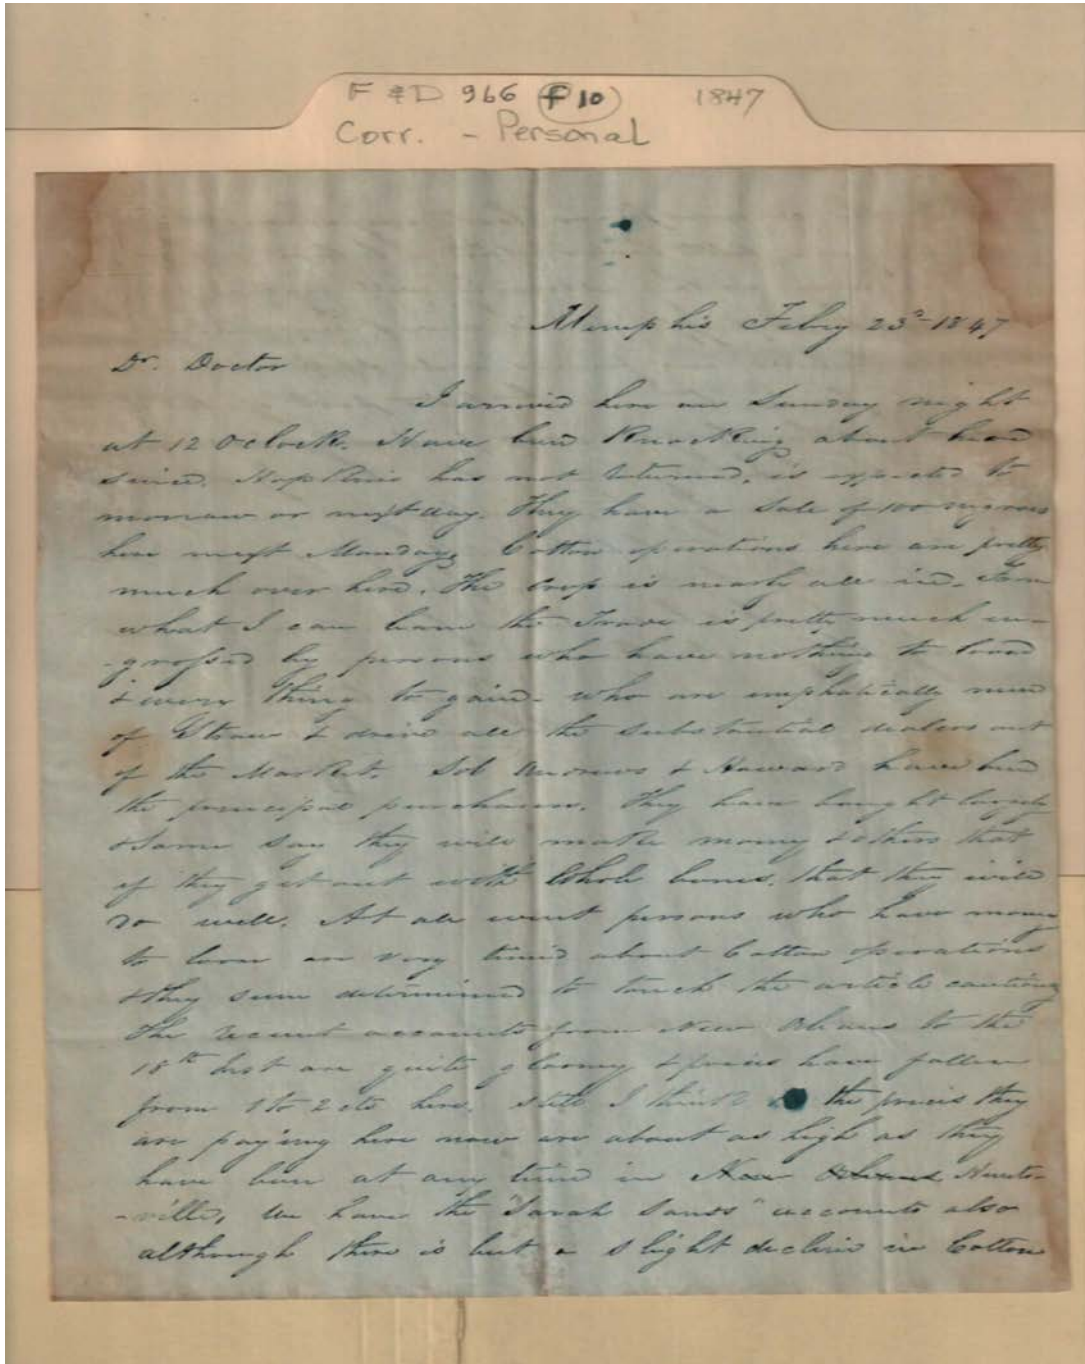 F & D 966 F10 1847
Corr. - Personal
Memphis Feby 23d 1847
Dr. Doctor
I arrived here on Sunday night
at 12 OClock. Have been Knocking about here
since. Hopkins has not returned, is expected to
morrow or next day. They have a Sale of 100 negroes
here next Monday. Cotton operations here are pretty
much over here. The crop is nearly all in. From
what I can learn the Trade is pretty much en-
-grossed by persons who have nothing to
& every thing to gain - who are emphatically men
of Straw & drive all the substantial dealers out
of the Market. Sol Andrews & Howard have been
the principal purchasers. They have bought largely
& Some say they will make money & others that
if they get out with Whole bones, that they will
do well. At all events persons who have money
to loan are very timid about Cotton operations
& they seem determined to touch the article
The recent accounts from New Orleans to the
18th Inst are quite gloomy & prices have fallen
from 1 to 2 cts here. Still I think the prices they
are paying here now are about as high as they
have been at any time in New Orleans Hunts-
-ville, We have the "Sarah Sands" accounts also
although there is but a slight decline in Cotton